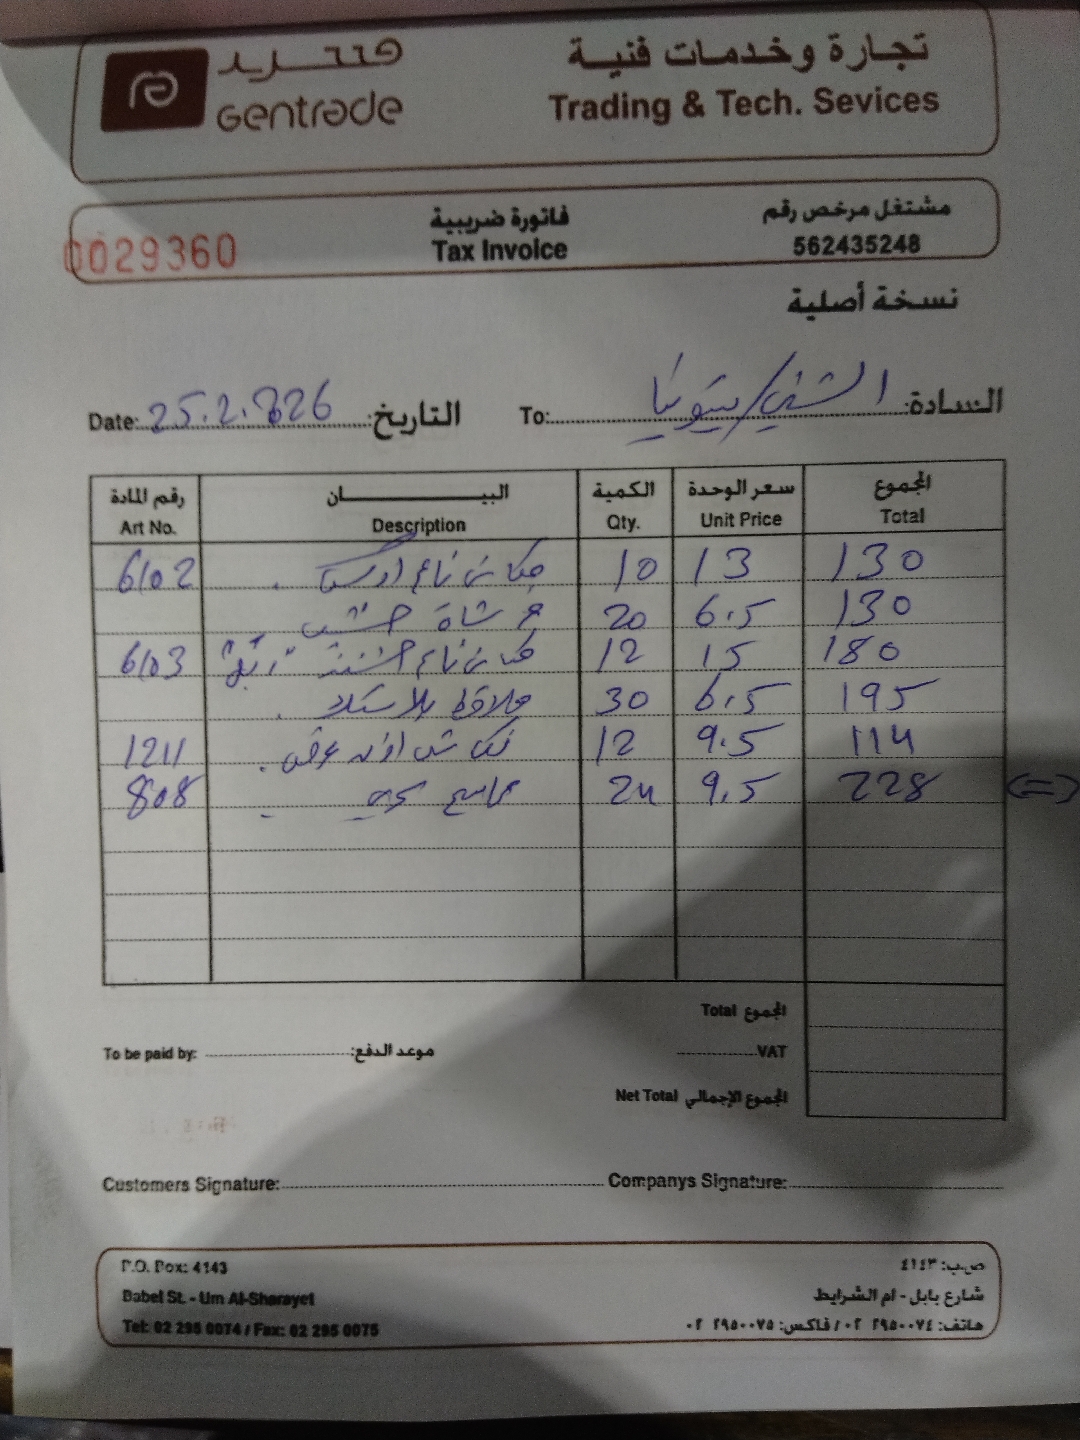 جنتريد
Gentrade
تجارة وخدمات فنية
Trading & Tech. Sevices
مشتغل مرخص رقم
562435248
فاتورة ضريبية
Tax Invoice
0029360
نسخة أصلية
السادة: الشني/بيتونيا To:
التاريخ: 25.2.2026 Date:
رقم المادة البيـــان الكمية سعر الوحدة المجموع
Art No. Description Qty. Unit Price Total
6102 ناعم 10 13 130
20 6.5 130
6103 ناعم 12 15 180
30 6.5 195
1211 12 9.5 114
808 24 9.5 228
Total المجموع
VAT
Net Total المجموع الإجمالي
To be paid by: موعد الدفع:
Customers Signature: Companys Signature:
P.O. Box: 4143
Babel St. - Um Al-Sharayet
Tel: 02 295 0074 / Fax: 02 295 0075
ص.ب: ٤١٤٣
شارع بابل - ام الشرايط
هاتف: ٢٩٥٠٠٧٤ ٠٢ / فاكس: ٢٩٥٠٠٧٥ ٠٢